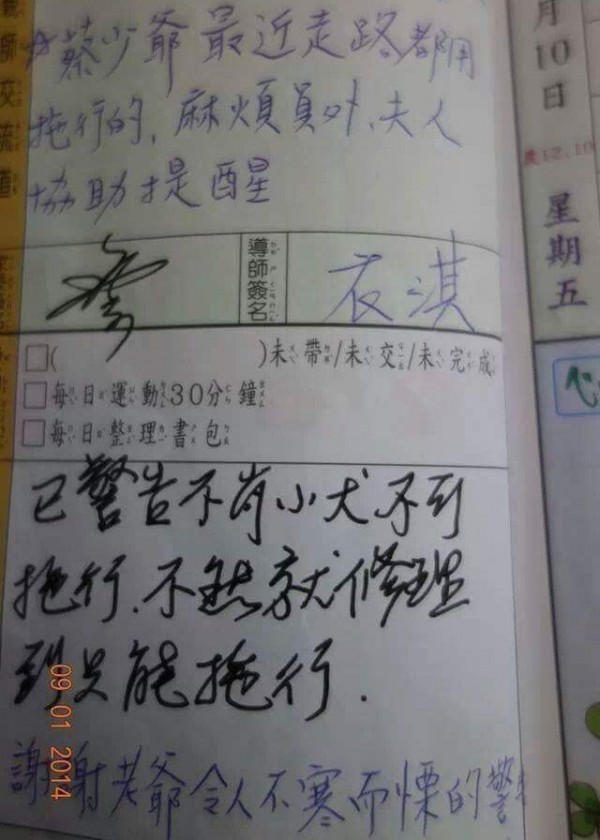 ☆蔡少爺最近走路都用
拖行的,麻煩員外、夫人
協助提醒
師交流道
導師簽名
衣淇
□( )未帶/未交/未完成
□每日運動30分鐘
□每日整理書包
已警告不肖小犬不可
拖行.不然就修理
到只能拖行.
謝謝老爺令人不寒而慄的警
09 01 2014
月10日
農12.10
星期五